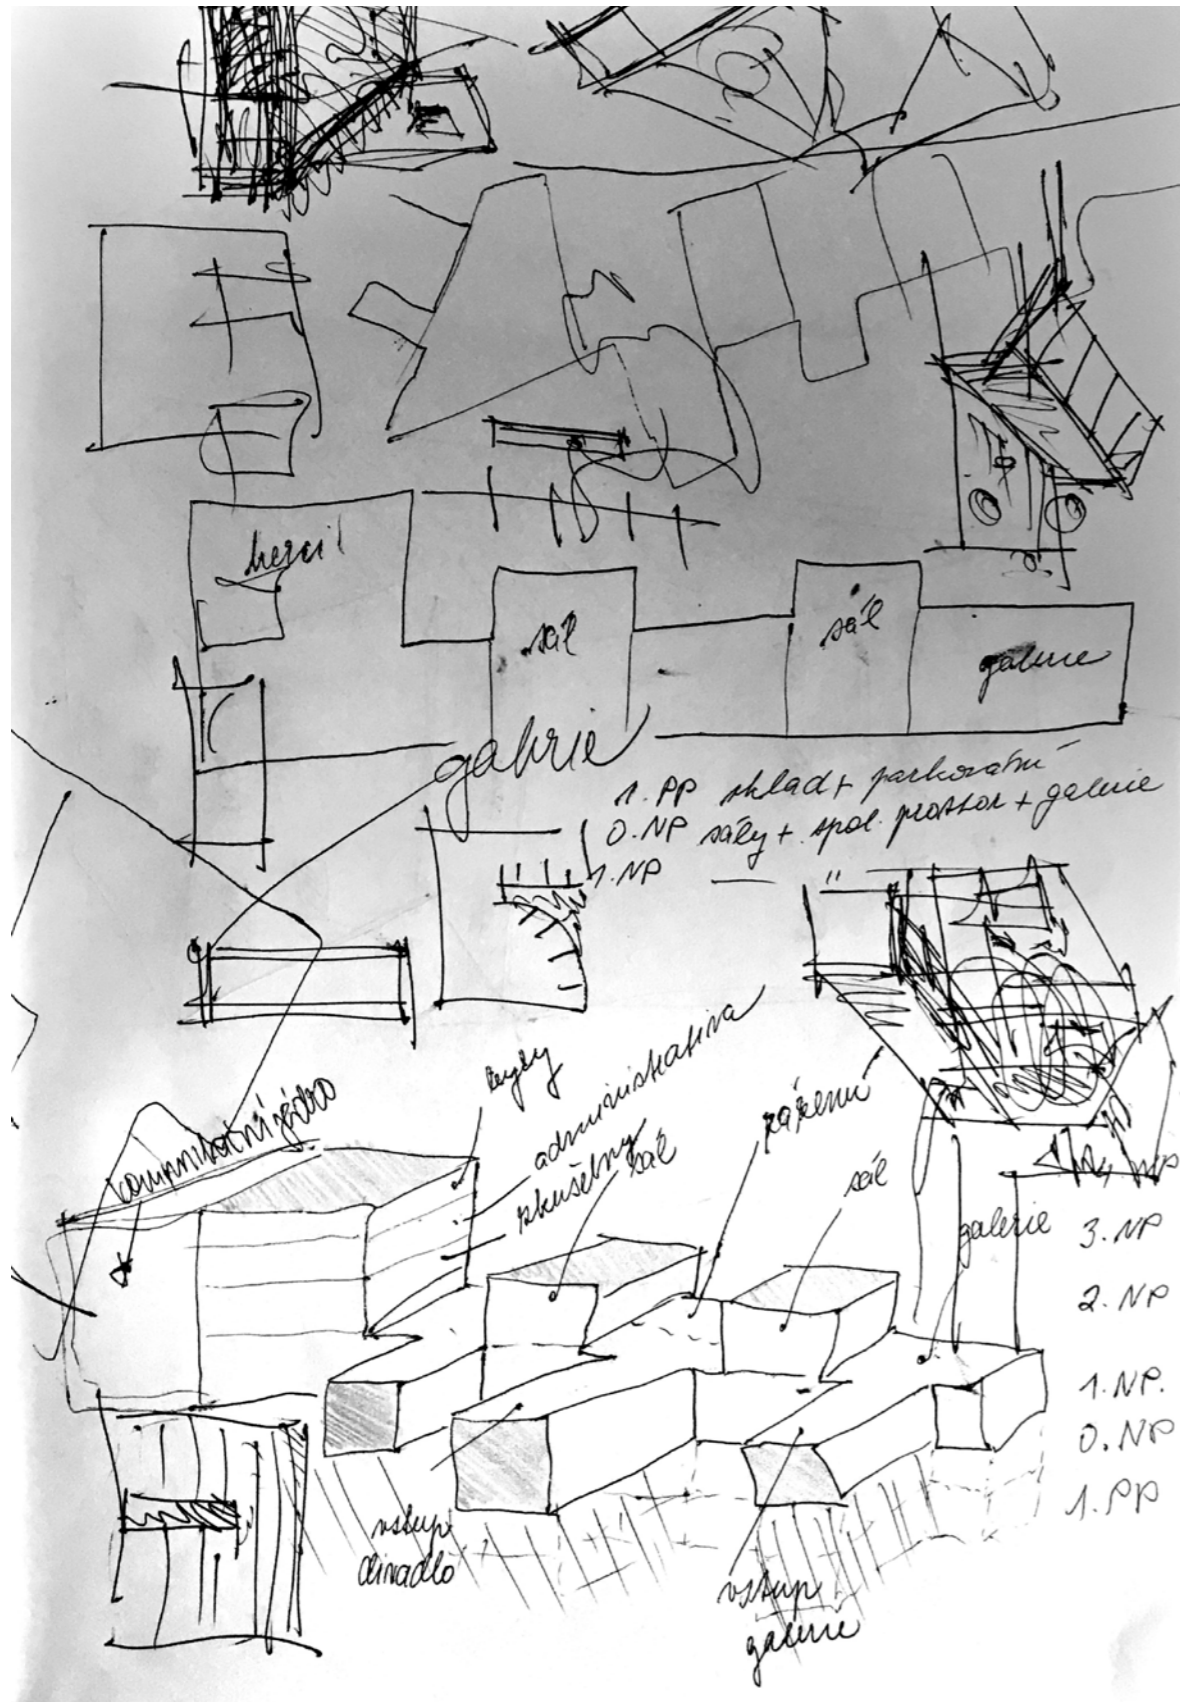 herci
sál
sál
galerie
galerie
1. PP sklad + parkování
0. NP sály + spol. prostor + galerie
1. NP — " —
byty
administrativa
komunikační jádro
zkušebny
sál
zázemí
sál
galerie
3. NP
2. NP
1. NP.
0. NP
1. PP
vstup
divadlo
vstup
galerie